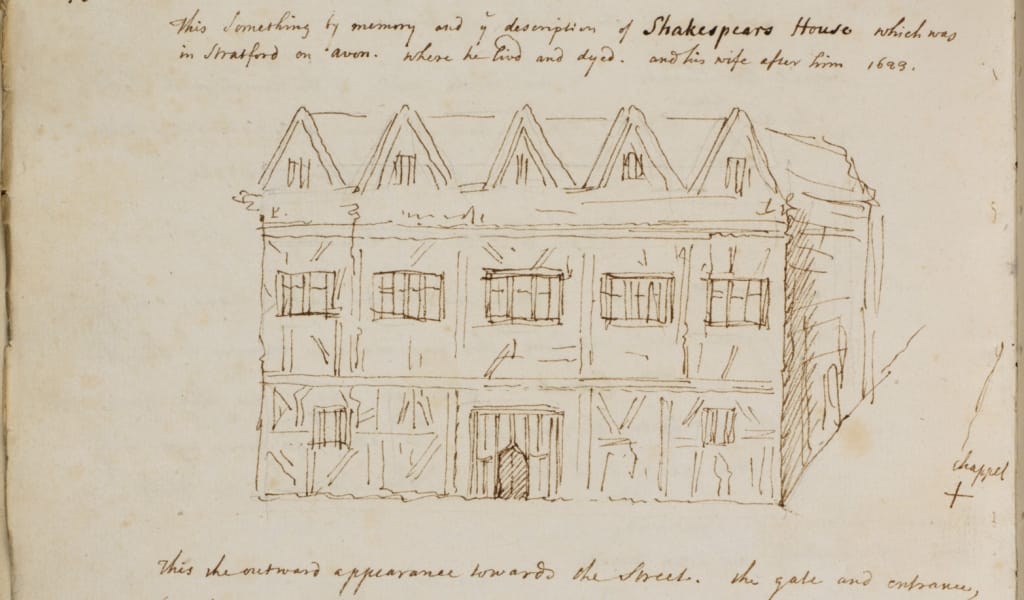 This Something by memory and ẙ description of Shakespears House which was
in Stratford on avon. where he livd and dyed. and his wife after him 1683.
chappel
This the outward appearance towards the Street. the gate and entrance,